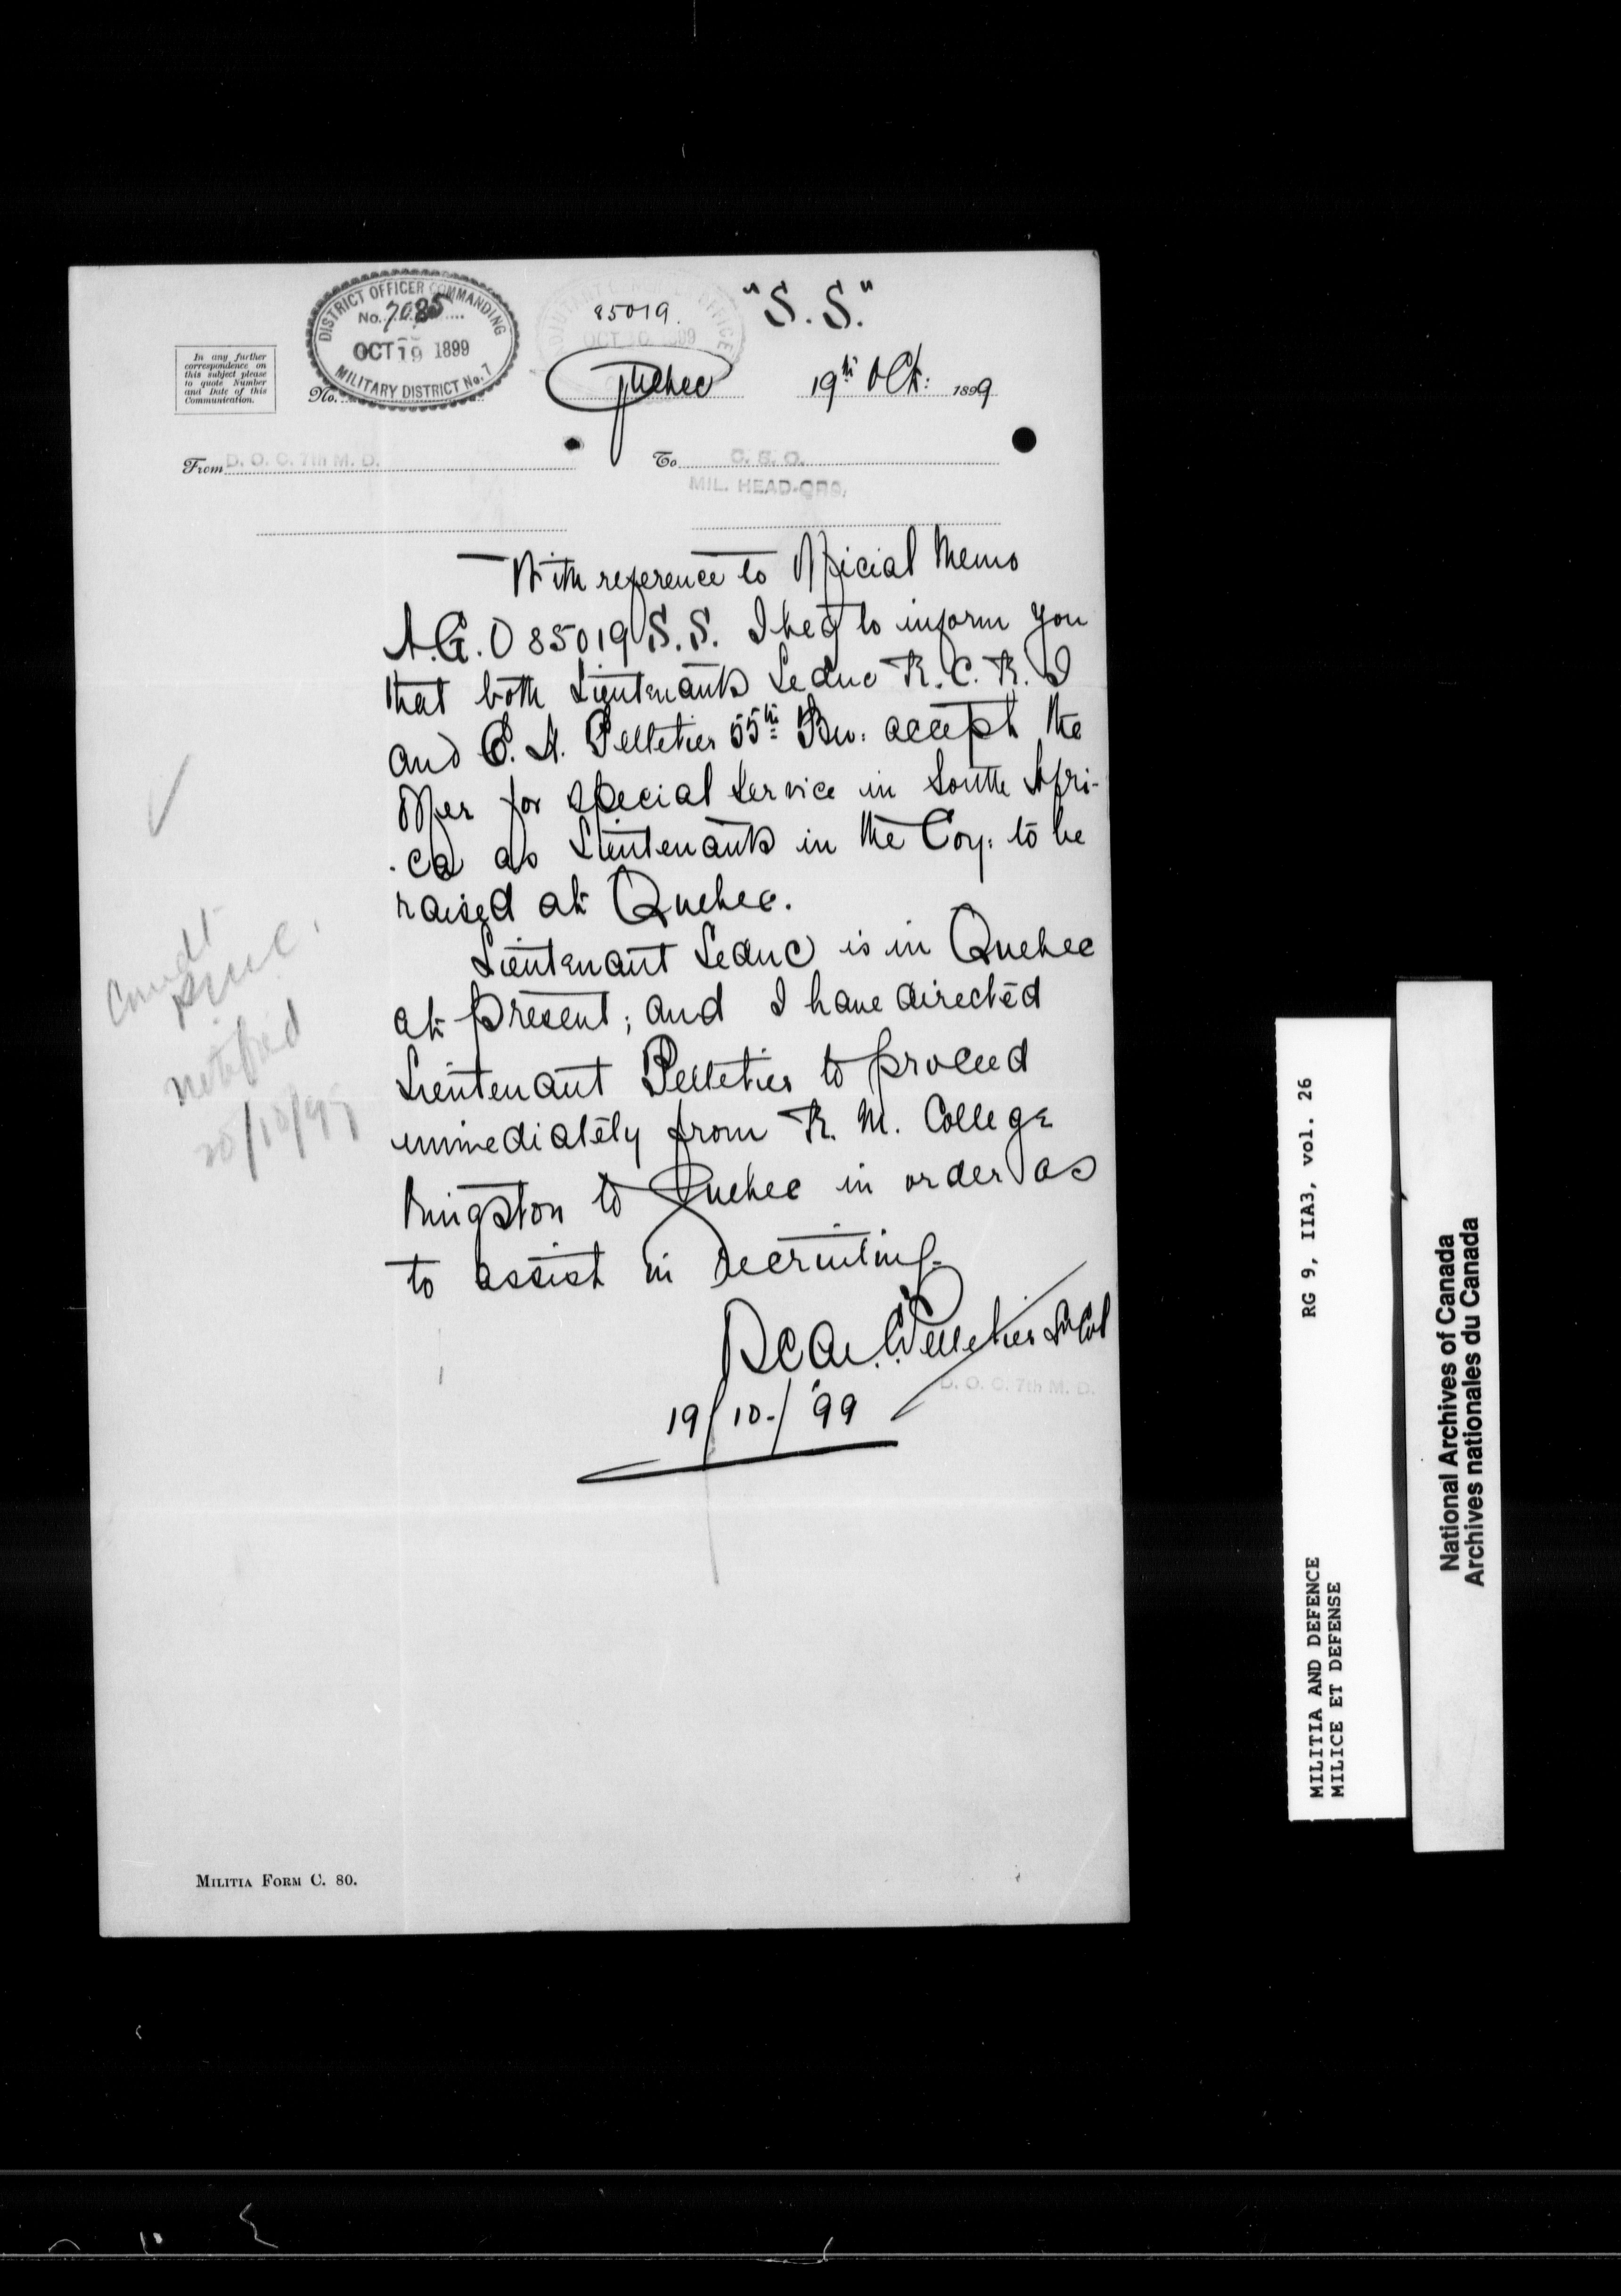 DISTRICT OFFICER COMMANDING
No. 7085
OCT 19 1899
MILITARY DISTRICT No. 7
85019.
"S.S."
In any further
correspondence on
this subject please
to quote Number
and Date of this
Communication.
No.
Quebec 19th Oct: 1899
From D. O. C. 7th M. D. To C. S. O.
MIL. HEAD-QRS,
With reference to Official Memo
A.G.O 85019 S.S. I beg to inform you
that both Lieutenants Leduc R.C.R.I
and E. A. Pelletier 55th Bn: accept the
offer for special service in South Afri-
-ca as Lieutenants in the Coy: to be
raised at Quebec.
Lieutenant Leduc is in Quebec
at present; and I have directed
Lieutenant Pelletier to proceed
immediately from R. M. College
Kingston to Quebec in order as
to assist in recruiting.
Pelletier Lt Col
D. O. C. 7th M. D.
19/10/'99
Comdt
RMC.
notified
20/10/99
MILITIA FORM C. 80.
MILITIA AND DEFENCE RG 9, IIA3, vol. 26
MILICE ET DEFENSE
National Archives of Canada
Archives nationales du Canada